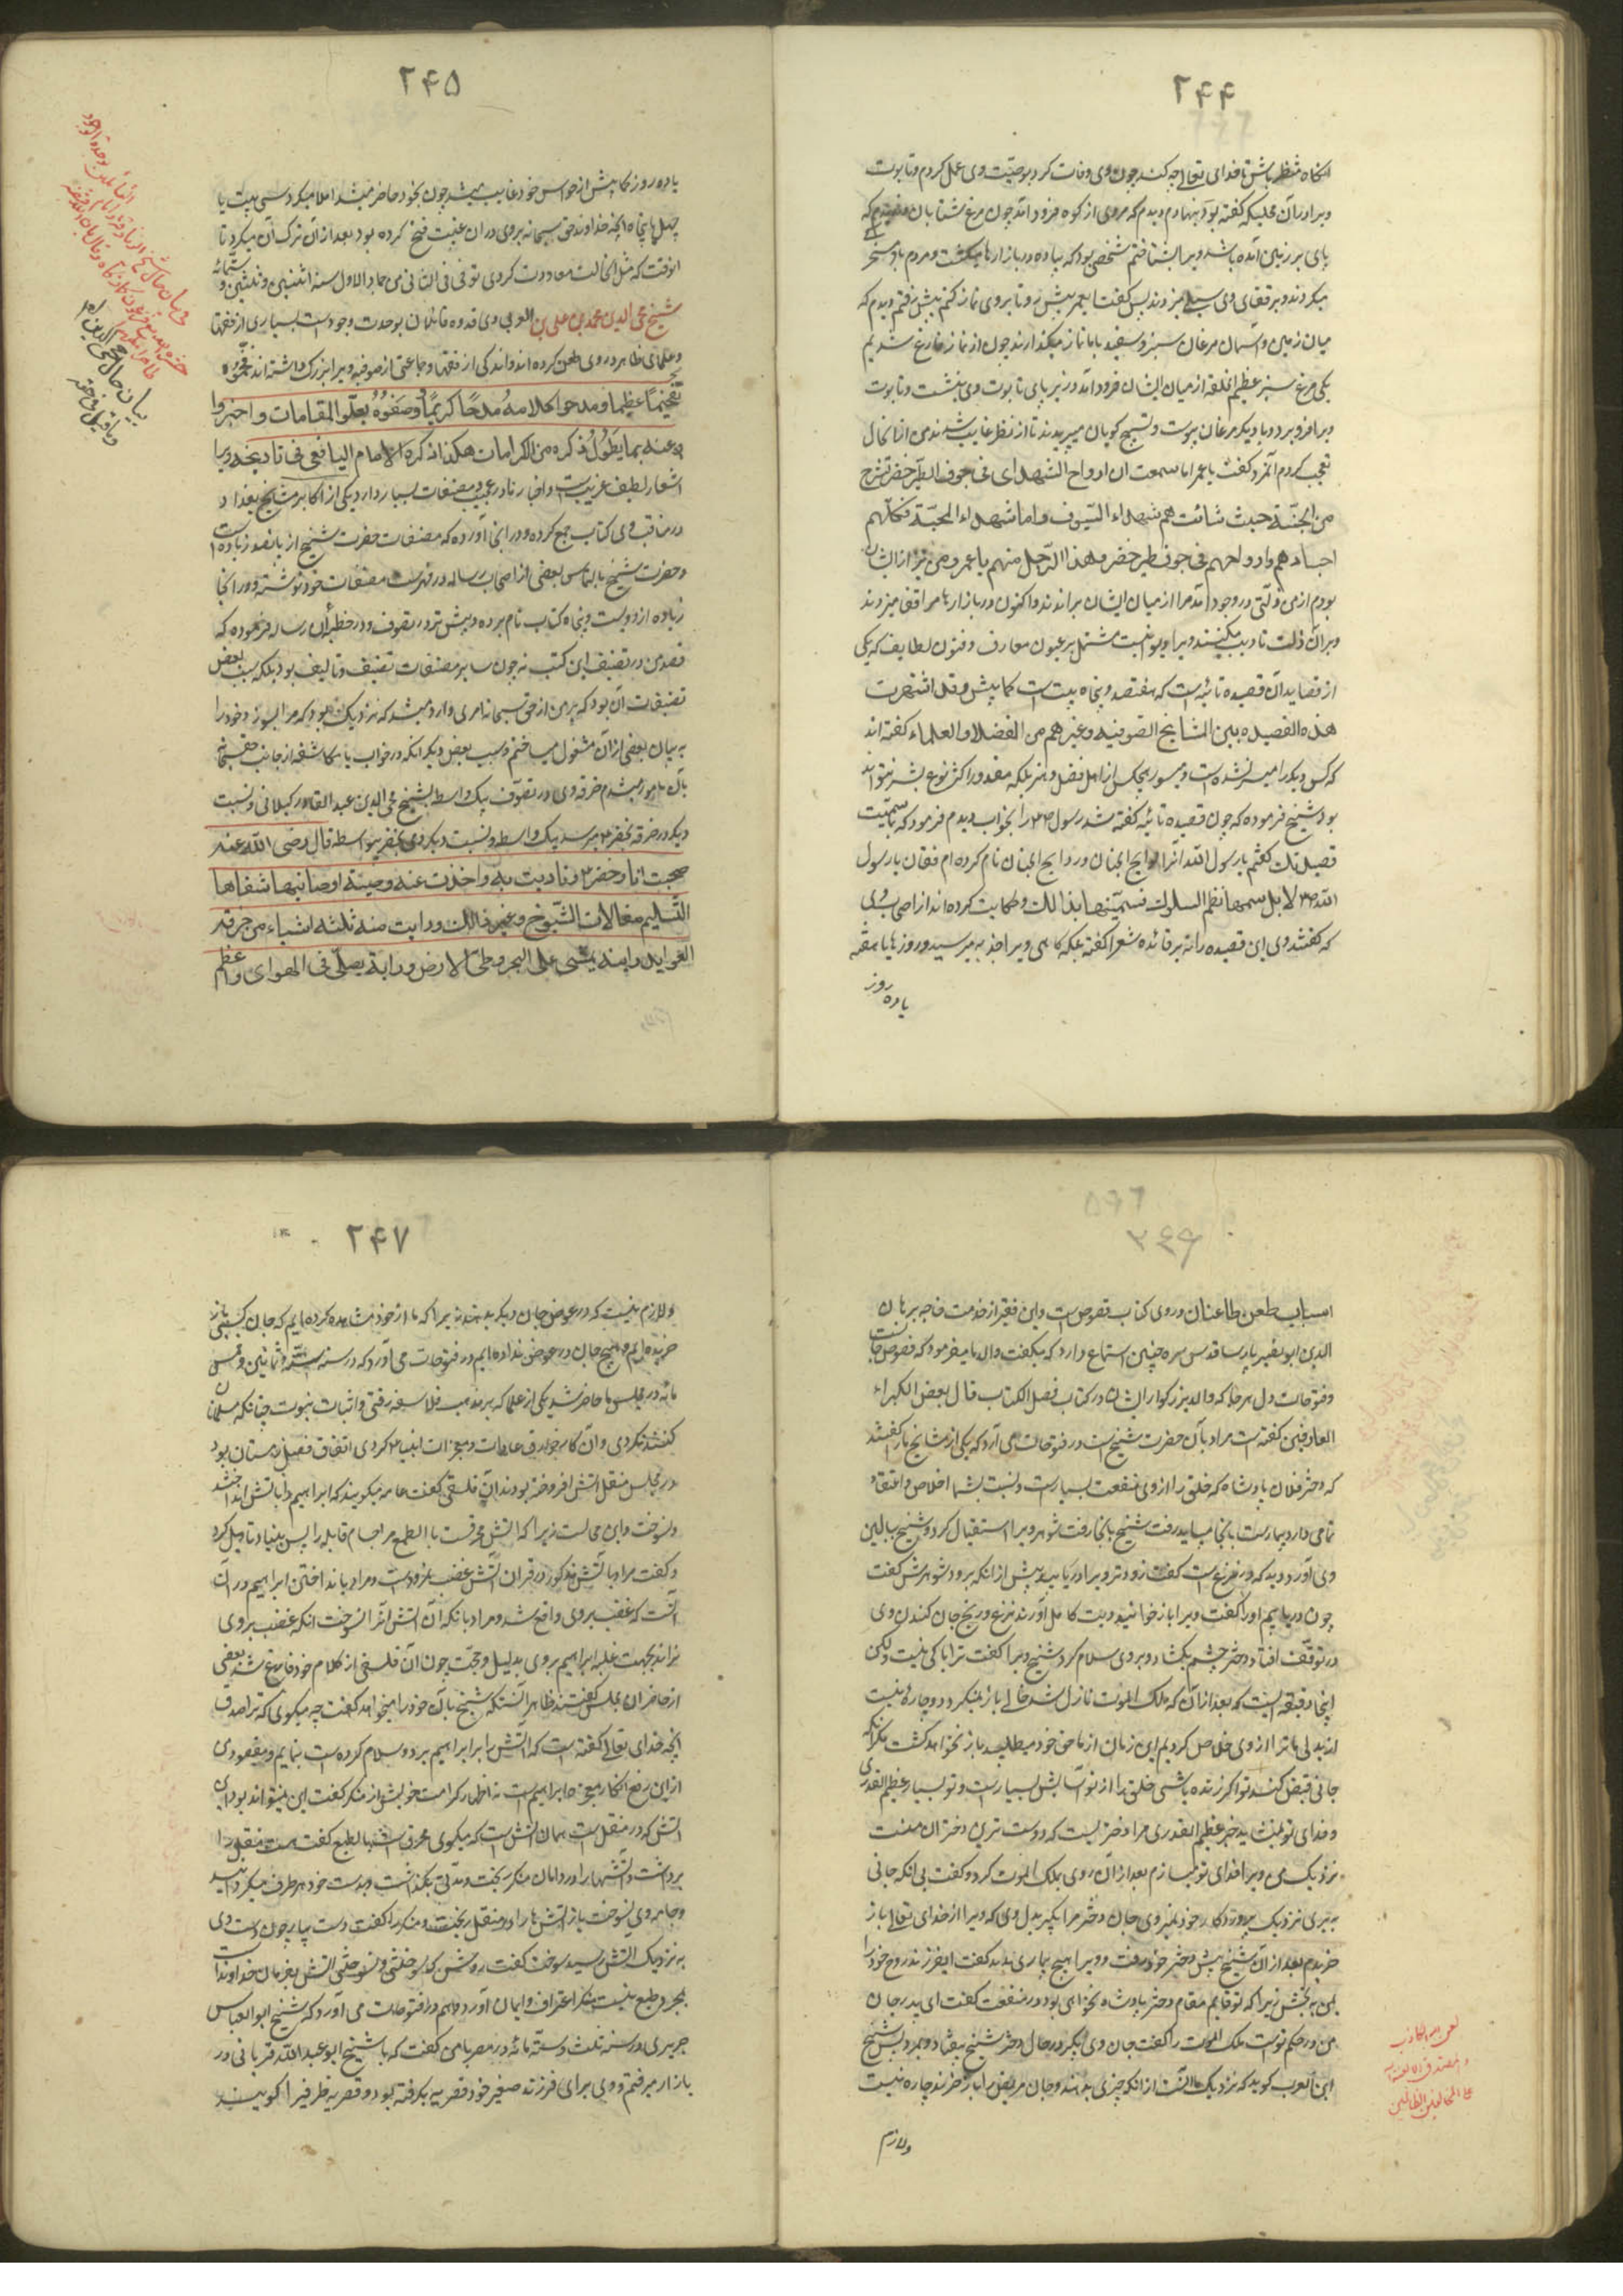 ۲۴۴
انکاه منتظر باش تا خدای تعالی چه کند چون وی وفات کرد بوصیّت وی عمل کردم و تابوت
ویرا در آن محلیکه گفته بود بنهادم دیدم که مردی از کوه فرود آمد چون مرغ شتابان که
پای بر زمین آمده باشد ویرا بشناختم شخصی بود که پیاده در بازارها میکشت و مردم باو سخر
میکردند و بر قفای وی سیلی میزدند پس گفت یا عمر پیش رو تا بروی نماز کنیم پیش رفتم دیدم که
میان زمین و آسمان مرغان سبز و سفید با ما نماز میکذارند چون از نماز فارغ شدیم
یکی مرغ سبز عظیم الخلقه از میان ایشان فرود آمد و زیر پای تابوت وی بنشست و تابوت
ویرا فرو برد و با دیکر مرغان پیوست و تسبیح کویان میپریدند تا از نظر غایب شدند من از آن حال
تعجب کردم آنمرد گفت یا عمر اما سمعت ان ارواح الشهداء فی جوف الطیر خضر تسرح
من الجنّة حیث شائت هم شهداء السّیوف و اما شهداء المحبّة فکلّهم
اجسادهم و ارواحهم فی جوف طیر خضر و هذا الرّجل منهم یا عمر و من نیز از ایشان
بودم از من زلّتی در وجود آمد مرا از میان ایشان براندند و اکنون در بازارها مرا قفا میزنند
و بر آن ذلت تادیب میکنند ویرا دیوانیست مشتمل بر عیون معارف و فنون لطایف که یکی
از قصاید آن قصیده تائیه است که هفتصد و پنجاه بیت است کما بیش و قد اشتهرت
هذه القصیده بین المشایخ الصوفیه و غیرهم من الفضلا و العلماء گفته اند
که کس دیکر را میسر نشده است و میسور هیچکس از اهل فضل و هنر بلکه مقدور اکثر نوع بشر نتواند
بود شیخ فرموده که چون قصیده تائیه گفته شد رسول را بخواب دیدم فرمود که یا عمر ما سمّیت
قصیدتک گفتم یا رسول الله آنرا لوایح الجنان و روایح الجنان نام کرده ام فقال یا رسول
الله لا بل سمها نظم السلوک فسمّیتها بذالک و حکایت کرده اند از اصحاب وی
که گفتند وی این قصیده را نه بر قائده شعرا گفته بلکه کاهی ویرا جذبه میرسید و روزها یا هفته
یا ده روز
۲۴۵
یا ده روز کما بیش از حواس خود غایب میشد چون بخود حاضر میشد املا میکرد سی بیت یا
چهل یا پنجاه آنچه خداوند حق سبحانه بروی در آن غیبت فتح کرده بود بعد از آن ترک آن میکرد تا
انوقت که مثل آن حالت معاودت کردی توفی فی الثانی من جماد الاول سنه اثنین و ثلثین و ستمائه
شیخ محی الدین محمد بن علی بن العربی وی قدوه قائلان بوحدت وجود است بسیاری از فقها
و علمای ظاهر در وی طعن کرده اند و اندکی از فقها و جماعتی از صوفیه ویرا بزرک داشته اند فخّموه
تفخیمًا عظیما و مدحوا کلامهُ مدحًا کریمًا و وصفوهُ بعلّو المقامات و اخبروا
عنه بما یطول ذکره من الکرامات هکذا ذکره الامام الیافعی فی تاریخه ویرا
اشعار لطیف غریب است و اخبار نادر عجیب و مصنفات بسیار دارد یکی از اکابر مشایخ بغداد
در مناقب وی کتاب جمع کرده و در آنجا آورده که مصنفات حضرت شیخ از پانصد زیاده است
و حضرت شیخ بالتماس بعضی از اصحاب رساله در فهرست مصنفات خود نوشته و در آنجا
زیاده از دویست و پنجاه کتاب نام برده و بیشتر در تصوف و در خطبه آن رساله فرموده که
قصد من در تصنیف این کتب نه چون سایر مصنفات تصنیف و تالیف بود بلکه سبب بعض
تصنیفات آن بود که بر من از حق سبحانه امری وارد میشد که نزدیک بود که مرا بسوزد خود را
به بیان بعضی از آن مشغول میساختم و سبب بعض دیکر آنکه در خواب یا مکاشفه از جانب حقسبحانه
بآن مامور میشدم خرقه وی در تصوف بیک واسطه بشیخ محی الدین عبد القادر کیلانی و نسبت
دیکر در خرقه بخضر میرسد بیک واسطه و نسبت دیکر وی بخضر بیواسطه قال رضی الله عنه
صحبت انا و خضر و تادبت به و اخذت عنه وصیّة اوصانیها شفاها
التّسلیم مقالات الشّیوخ و غیر ذالک و رایت منه ثلثه اشیاء من خرق
العواید رایته یمشی علی البحر و طیّ الارض و رایته یصلّی فی الهوای و اعظم
بیان حال محی الدین
۳۴۶
اسباب طعن طاعنان در وی کتاب فصوص است و این فقیر از خدمت خواجه برهان
الدین ابو نصیر پارسا قدس سره چنین استماع دارد که میکفت والد ما میفرمود که فصوص جانست
و فتوحات دل هر جا که والد بزرکوار ایشان در کتاب فصل الکتاب قال بعض الکبراء
العارفین گفته است مراد بآن حضرت شیخ است در فتوحات می آرد که یکی از مشایخ را گفتند
که دختر فلان پادشاه که خلق را از وی منفعت بسیار است و نسبت بشما اخلاص و اعتقاد
تمامی دارد بیمار است بآنجا میباید رفت شیخ بآنجا رفت شوهر ویرا استقبال کرد و شیخ ببالین
وی آورد دید که در نزع است گفت زودتر ویرا دریابید پیش از آنکه برود شوهرش گفت
چون دریابیم اورا گفت ویرا باز خوانید و دیت کامل آورند نزع و رنج جان کندن وی
در توقف افتاد و دختر چشم بکشاد و بر وی سلام کرد شیخ ویرا گفت ترا باکی نیست و لیکن
اینجا دقیقه ایست که بعد از آن که ملک الموت نازل شد خالی باز نمیکردد و چاره نیست
از بدلی ما ترا از وی خلاص کردیم این زمان از ما حق خود میطلبد باز نخواهد کشت مکر آنکه
جانی قبض کند تو اکر زنده باشی خلق را از تو آسایش بسیار است و تو بسیار عظیم القدری
و فدای تو نمیشاید جز عظیم القدری مرا دختریست که دوست ترین دختران منست
نزدیک من ویرا فدای تو میسازم بعد از آن روی بملک الموت کرد و گفت بی آنکه جانی
به بری نزدیک پروردکار خود نمیروی جان دختر مرا بکیر بدل وی که ویرا از خدای تعالی باز
خریدم بعد از آن شیخ پیش دختر خود رفت و ویرا هیچ بیماری نبود گفت ای فرزند روح خود را
بمن به بخش زیرا که تو قایم مقام دختر پادشاه نخواهی بود در منفعت گفت ای پدر جان
من در حکم تو است ملک الموت را گفت جان وی بکیر در حال دختر شیخ بیفتاد و بمرد پس شیخ
ابن العرب کوید که نزدیک ما آنست از آنکه چیزی بدهند و جان مریض را باز خرند چاره نیست
و لازم
لعن الله الکاذب
۲۴۷
و لازم نیست که در عوض جان دیکر بدهند زیرا که ما از خود مشاهده کرده ایم که جان کسی باز
خریده ایم و هیچ جان در عوض نداده ایم در فتوحات می آورد که در سنه ستّه و ثمانین و خمس
مائه در مجلس ما حاضر شد یکی از علما که بر مذهب فلاسفه رفتی و اثبات نبوت چنانکه مسلمانان
کنند نکردی و انکار خوارق عادات و معجزات انبیا کردی اتفاقا فصل زمستان بود
در مجلس منقل آتش افروخته بودند آن فلسفی گفت عامه میکویند که ابراهیم را بآتش انداختند
و نسوخت و این محالست زیرا که آتش محرقست بالطبع مر اجسام قابله را پس بنیاد تاویل کرد
و گفت مراد بآتش مذکور در قرآن آتش غضب نمرود است و مراد بانداختن ابراهیم در آن
آنست که غضب بروی واقع شد و مراد بآنکه آن آتش آنرا نسوخت آنکه غضب بروی
نراند بجهت غلبه ابراهیم بروی بدلیل و حجّت چون آن فلسفی از کلام خود فارغ شد بعضی
از حاضران مجلس گفتند ظاهر آنستکه شیخ بآن خود را میخواهد گفت چه میکوی که ترا صدق
آنچه خدای تعالی گفته است که آتش را بر ابراهیم برد و سلام کرده است بنمایم و مقصود من
از این رفع انکار معجزه ابراهیم است نه اظهار کرامت خویش آن منکر گفت این نمیتواند بود این
آتش که در منقل است همان آتش است که میکوی محرق است بالطبع گفت هست منقل را
برداشت و آتشها را در دامان منکر ریخت و مدّتی بکذاشت و بدست خود هر طرف میکردانید
و جامه وی نسوخت باز آتش ها را در منقل ریخت و منکر را گفت دست بیار چون دست وی
به نزدیک آتش رسید سوخت گفت روشن که سوختن و نسوختن آتش بفرمان خداوند است
بمجرد طبع نیست منکر اعتراف و ایمان آورد و هم در فتوحات می آورد که شیخ ابو العباس
حریری در سنه ثلث و ستّه مائه در مصر با من گفت که با شیخ ابو عبد الله قربانی در
بازار میرفتم و وی برای فرزند صغیر خود قصریه بکرفته بود و قصریه ظرفیرا کویند